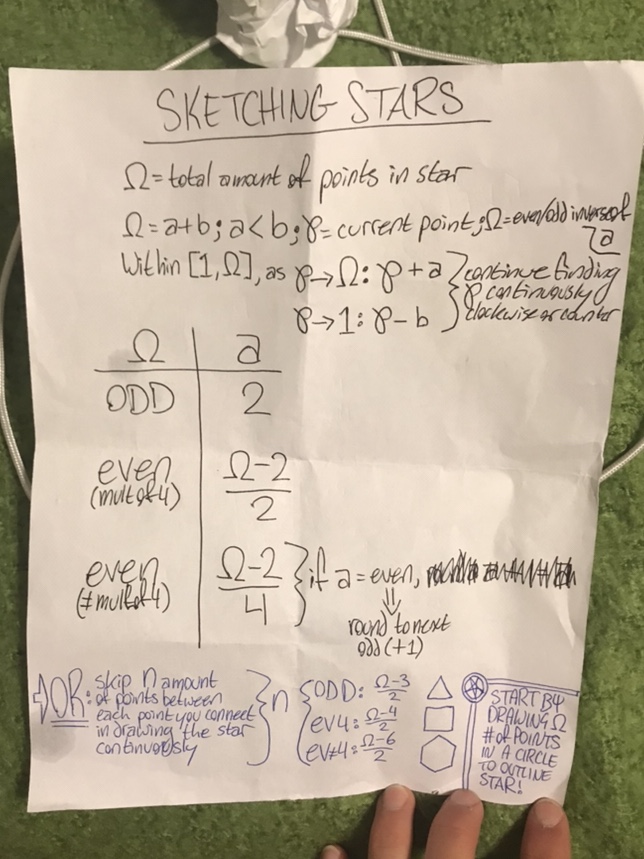 SKETCHING STARS
Ω = total amount of points in star
Ω = a+b; a<b; γ = current point; Ω = even/odd inverse of a
Within [1, Ω], as γ→Ω: γ + a } continue finding
γ continuously
γ→1: γ - b } clockwise or counter
Ω | a
ODD | 2
even (mult of 4) | Ω-2 / 2
even (≠ mult of 4) | Ω-2 / 4 } if a = even,
⇓
round to next
odd (+1)
⇒ OR: skip n amount
of points between
each point you connect
in drawing the star
continuously
} n { ODD: Ω-3 / 2
ev4: Ω-4 / 2
ev≠4: Ω-6 / 2
START BY
DRAWING Ω
# of POINTS
IN A CIRCLE
TO OUTLINE
STAR!